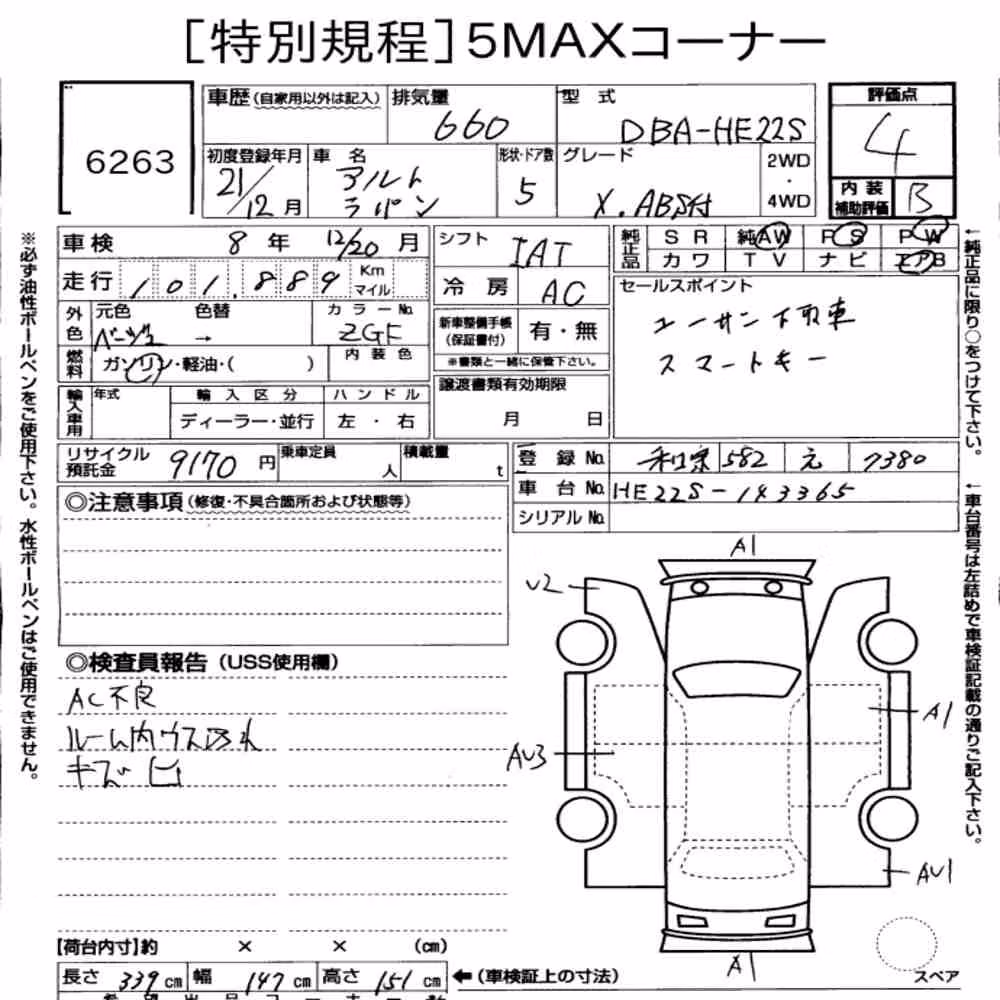 [特別規程]5MAXコーナー
6263
車歴(自家用以外は記入) 排気量 660 型式 DBA-HE22S 評価点 4
初度登録年月 21/12月 車名 アルトラパン 形状・ドア数 5 グレード X.ABS付 2WD・4WD 内装補助評価 B
車検 8年 12/20月 シフト IAT 純正品 SR 純AW PS PW
走行 101,889 Km マイル 冷房 AC カワ TV ナビ エアB
外色 元色 ベージュ 色替 → カラーNo. ZGF 新車整備手帳(保証書付) 有・無 セールスポイント
ユーザー下取車
スマートキー
燃料 ガソリン・軽油・( ) 内装色 ※書類と一緒に保管下さい。
輸入車用 年式 輸入区分 ハンドル 譲渡書類有効期限
ディーラー・並行 左・右 月 日
リサイクル預託金 9170円 乗車定員 人 積載量 t 登録No. 582 7380
車台No. HE22S-143365
シリアルNo.
◎注意事項(修復・不具合箇所および状態等)
◎検査員報告(USS使用欄)
AC不良
ルーム内ウス汚れ
キズ
A1
U2
A1
AU3
AU1
A1
スペア
【荷台内寸】約 × × (cm)
長さ 339cm 幅 147cm 高さ 151cm ←(車検証上の寸法)
※必ず油性ボールペンをご使用下さい。水性ボールペンはご使用できません。
←純正品に限り○をつけて下さい。
←車台番号は左詰めで車検証記載の通りご記入下さい。